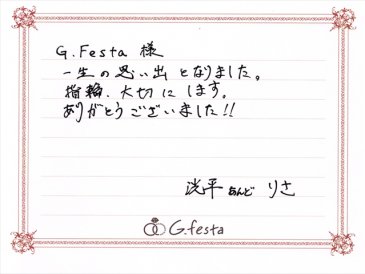 G.Festa 様
一生の思い出となりました。
指輪、大切にします。
ありがとうございました!!
洸平 あんど りさ
G.festa